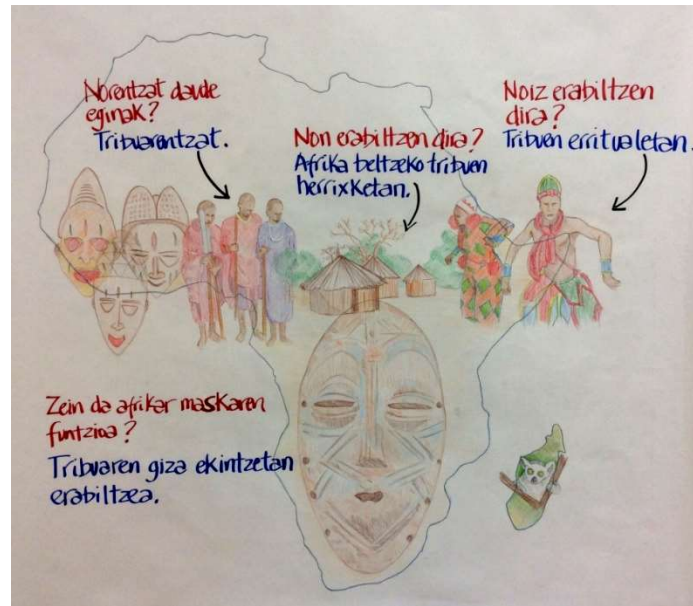 Norentzat daude
eginak?
Tribuarentzat.
Non erabiltzen dira?
Afrika beltzeko tribuen
herrixketan.
Noiz erabiltzen
dira?
Tribuen erritualetan.
Zein da afrikar maskaren
funtzioa?
Tribuaren giza ekintzetan
erabiltzea.